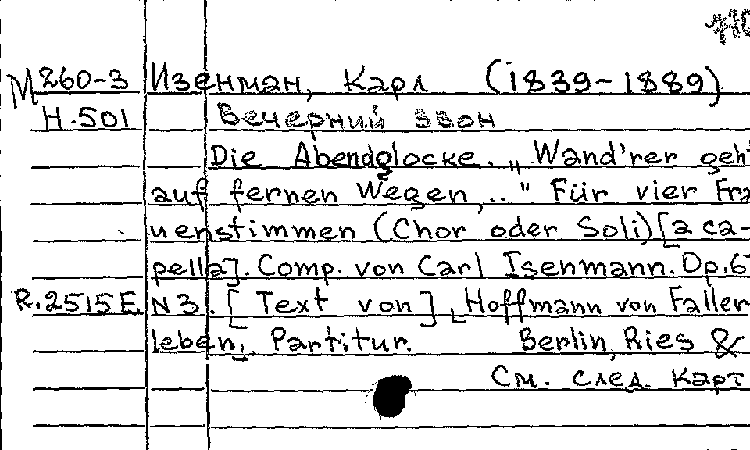 М260-3 Изенман, Карл (1839-1889)
Н.501 Вечерний звон
Die Abendglocke. „Wand'rer geht
auf fernen Wegen,.." Für vier Fra
uenstimmen (Chor oder Soli) [a ca-
pella]. Comp. von Carl Isenmann. Op.6
R.2515E. N3. [Text von] Hoffmann von Faller
leben, Partitur. Berlin, Ries &
См. след. карт